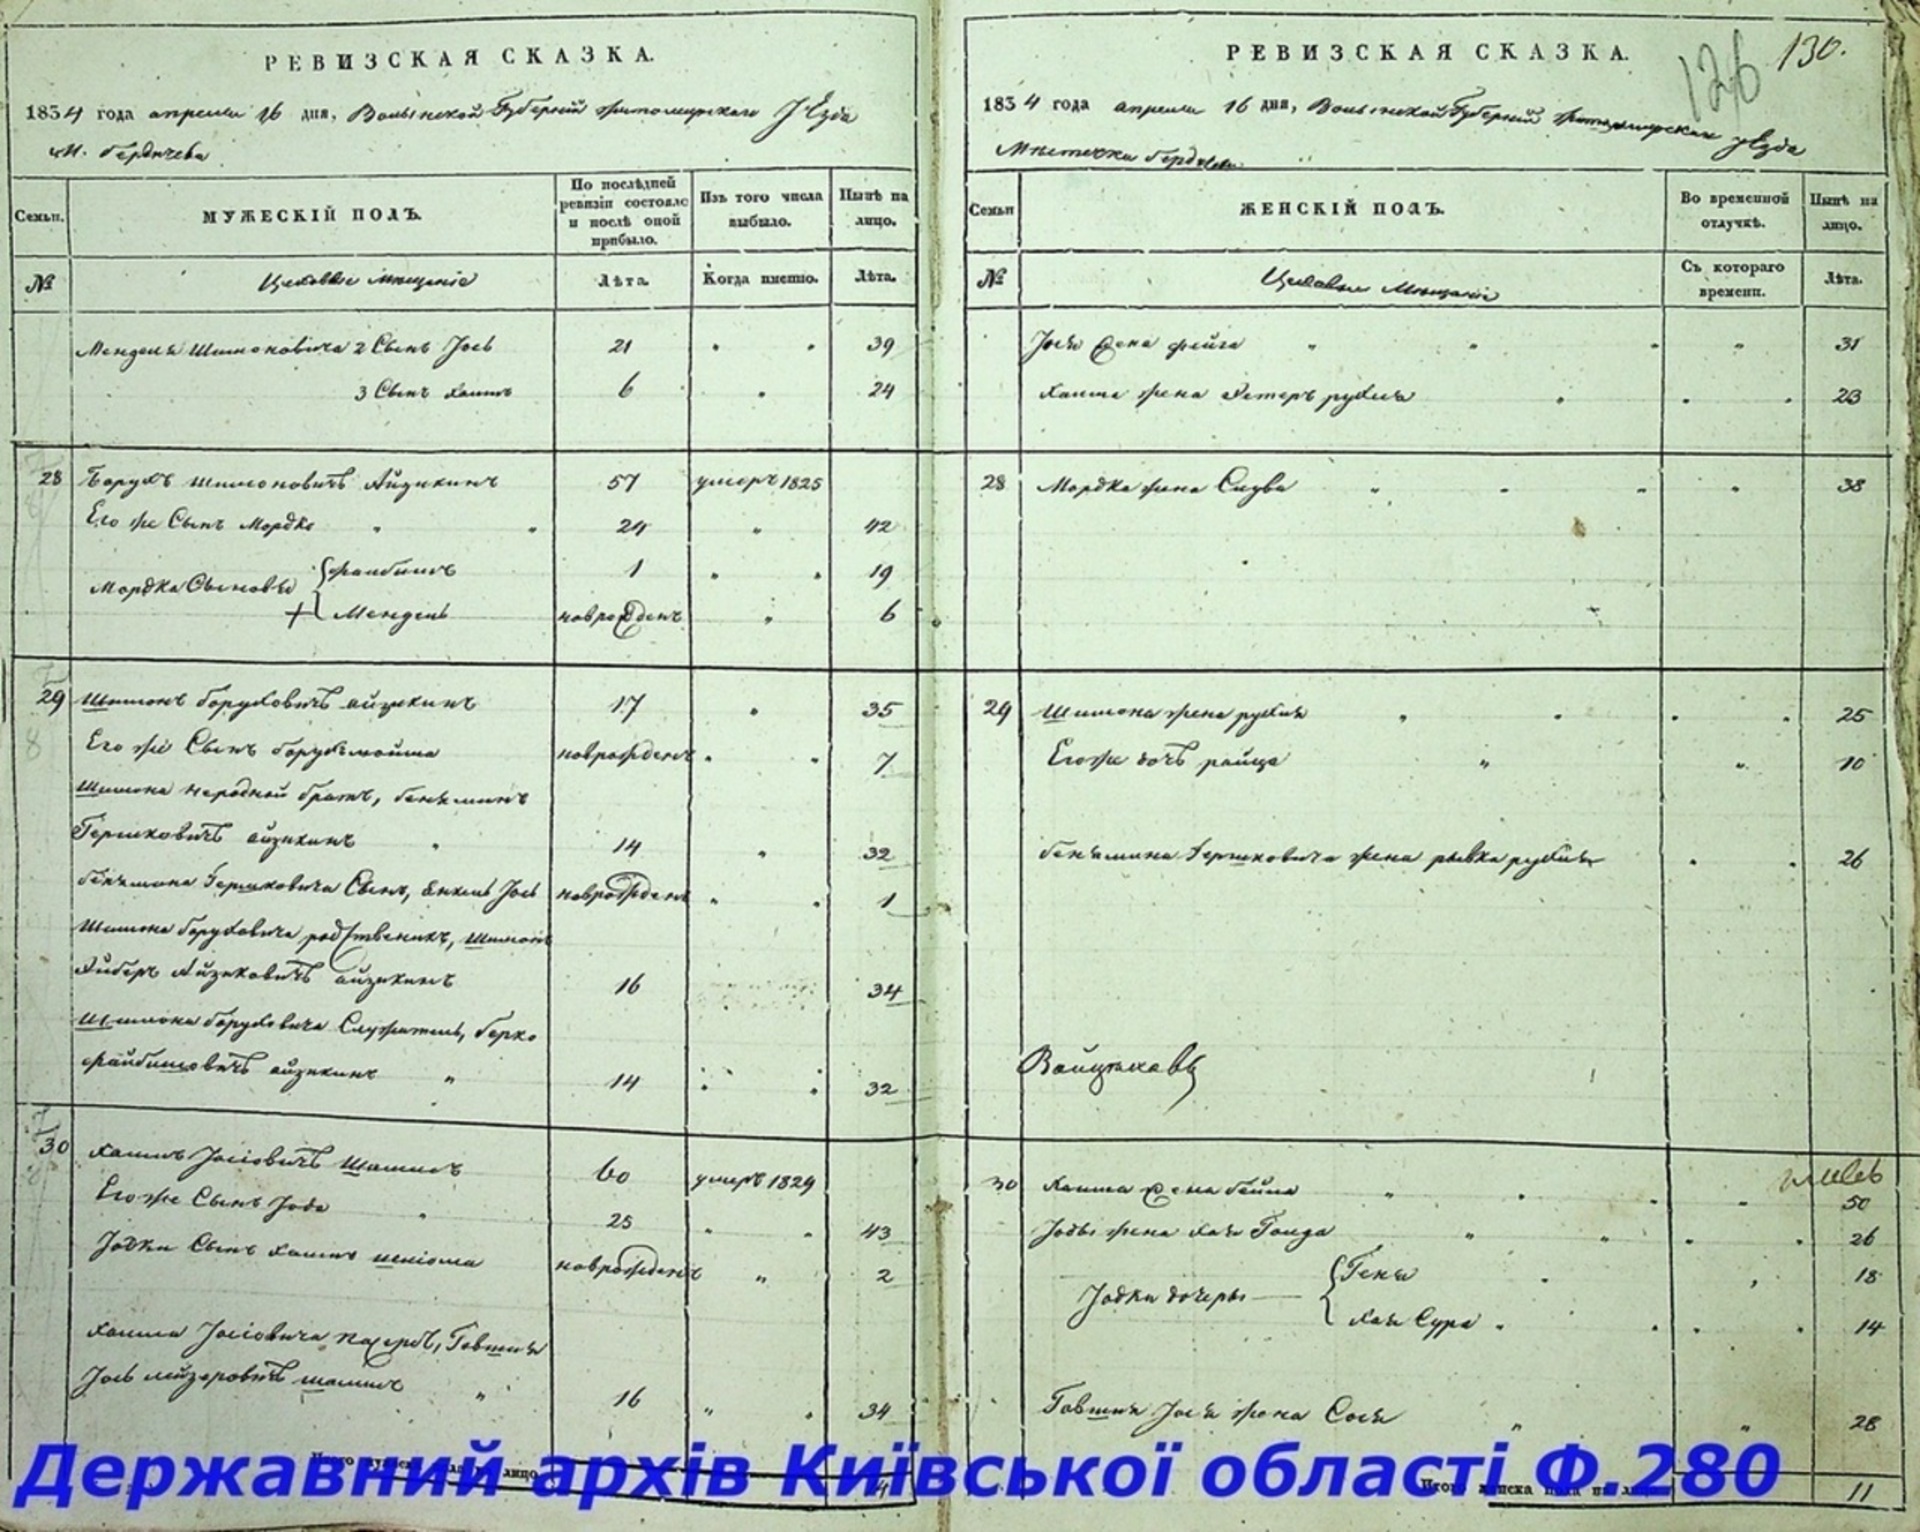 РЕВИЗСКАЯ СКАЗКА.
1834 года апреля 16 дня, Волынской Губернiи Житомирскаго уѣзда
М. Бердичева
Семьи. МУЖЕСКІЙ ПОЛЪ. По послѣдней ревизіи состояло и послѣ оной прибыло. Изъ того числа выбыло. Нынѣ на лицо.
№ Цеховые Мещанiе Лѣта. Когда именно. Лѣта.
Менделя Шимоновича 2 Сынъ Іось 21 39
3 Сынъ Хаимъ 6 24
28 Борухъ Шимоновичъ Айзикинъ 57 умеръ 1825
Его же Сынъ Мордко 24 42
Мордка Сыновья Файбишъ 1 19
Мендель новрожденъ 6
29 Шимонъ Боруховичъ Айзикинъ 17 35
Его же Сынъ Борухъ мойша новрожденъ 7
Шимона неродной братъ, Беньяминъ
Гершковичъ айзикинъ 14 32
Беньямина Гершковича Сынъ, Янкель Іось новрожденъ 1
Шимона Боруховича родственикъ, Шимонъ
Айзиковичъ айзикинъ 16 34
Шимона Боруховича Служитель, Берко
Файбишовичъ айзикинъ 14 32
30 Хаимъ Іосіовичъ 60 умеръ 1829
Его же Сынъ Іодко 25 43
Іодки Сынъ Хаимъ шліома новрожденъ 2
Хаима Іосіовича пасербъ, Говшия
Іось лейзеровичъ 16 34
РЕВИЗСКАЯ СКАЗКА.
126 130.
1834 года апреля 16 дня, Волынской Губернiи Житомирскаго уѣзда
Мѣстечка Бердичева
Семьи ЖЕНСКІЙ ПОЛЪ. Во временной отлучкѣ. Нынѣ на лицо.
№ Цеховые Мещанiе Съ котораго времени. Лѣта.
Іося жена фейга 31
Хаима жена Эстеръ рухля 23
28 Мордка жена Слува 38
29 Шимона жена рухля 25
Его же дочь райца 10
Беньямина Гершковича жена рывка рухля 26
30 Хаима жена бейла 50
Іодки жена Хая Голда 26
Іодки дочеры Геня 18
Хая Сура 14
Говшия Іося жена Сося 28
11
Державний архів Київської області Ф.280